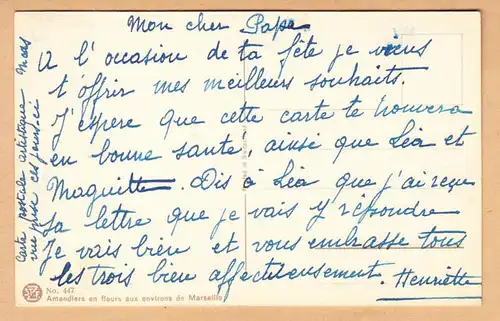 Mon cher Papa
A l'occasion de ta fête je viens
t'offrir mes meilleurs souhaits.
J'espère que cette carte te trouvera
en bonne santé, ainsi que Léa et
Maguitte. Dis à Léa que j'ai reçu
sa lettre que je vais y répondre
Je vais bien et vous embrasse tous
les trois bien affectueusement. Henriette
Carte postale artistique
vue prise ces jours ici
No. 447
Amandiers en fleurs aux environs de Marseille